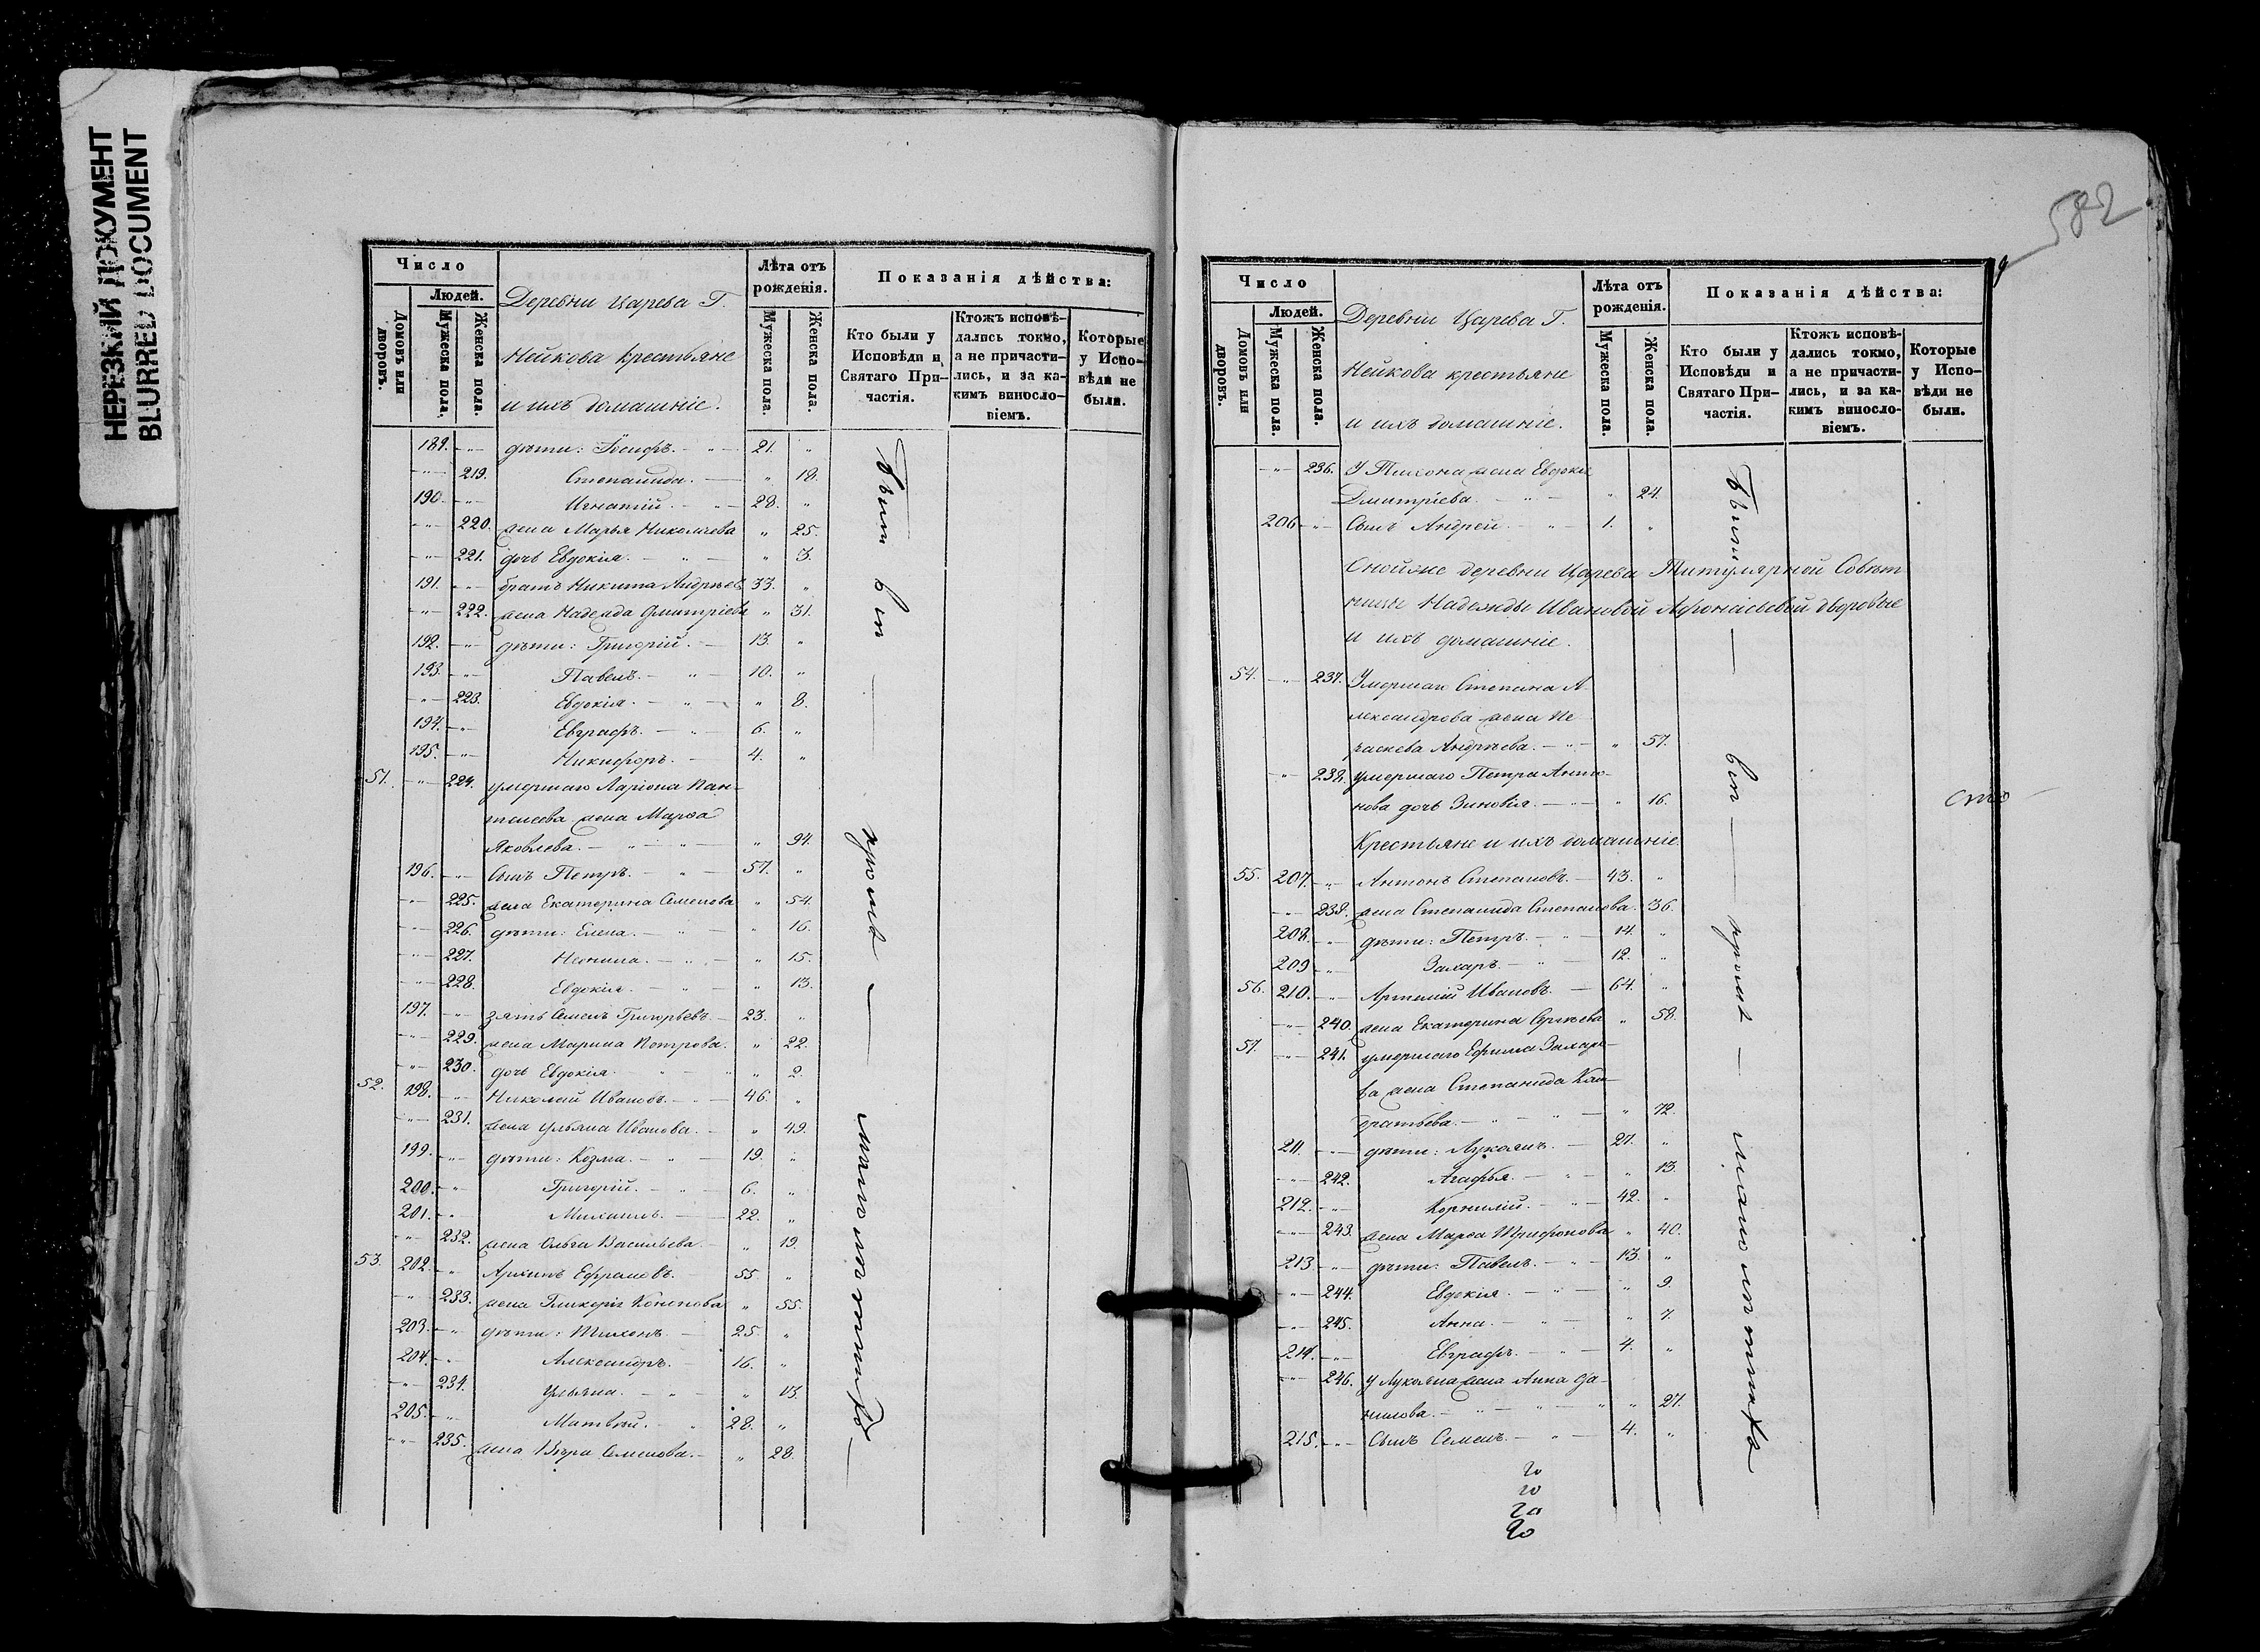 НЕРЕЗКИЙ ДОКУМЕНТ
BLURRED DOCUMENT
Число
Людей.
Домовъ или дворовъ.
Мужеска пола.
Женска пола.
Деревни Царева Г.
Нейкова крестьяне
и ихъ домашніе.
Лѣта отъ рожденія.
Мужеска пола.
Женска пола.
Показанія дѣйства:
Кто были у Исповѣди и Святаго Причастія.
Ктожъ исповѣдались токмо, а не причастились, и за какимъ винословіемъ.
Которые у Исповѣди не были.
189. дѣти: Іосифъ. 21.
219. Степанида. 18.
190. Игнатій. 28.
220. жена Марья Николаева 25.
221. дочь Евдокія. 3.
191. братъ Никита Андреев 33.
222. жена Надежда Дмитріева 31.
192. дѣти: Григорій. 13.
193. Павелъ. 10.
223. Евдокія. 8.
194. Евграфъ. 6.
195. Никифоръ. 4.
51. 224. умершаго Ларіона Пан-
телеева жена Марѳа
Яковлева. 94.
196. Сынъ Петръ. 57.
225. жена Екатерина Семенова 54.
226. дѣти: Елена. 16.
227. Неонила. 15.
228. Евдокія. 13.
197. зять Семенъ Григорьевъ. 23.
229. жена Марина Петрова. 22.
230. дочь Евдокія. 2.
52. 198. Николай Ивановъ. 46.
231. жена Ульяна Иванова. 49.
199. дѣти: Козма. 19.
200. Григорій. 6.
201. Михаилъ. 22.
232. жена Ольга Васильева. 19.
53. 202. Архипъ Ефремовъ. 55.
233. жена Гликерія Кононова 55.
203. дѣти: Тихонъ. 25.
204. Александръ. 16.
234. Ульяна. 13.
205. Матвѣй. 28.
235. жена Вѣра Семенова. 28.
Были вси кромѣ малолѣтнихъ
582
Число
Людей.
Домовъ или дворовъ.
Мужеска пола.
Женска пола.
Деревни Царева Г.
Нейкова крестьяне
и ихъ домашніе.
Лѣта отъ рожденія.
Мужеска пола.
Женска пола.
Показанія дѣйства:
Кто были у Исповѣди и Святаго Причастія.
Ктожъ исповѣдались токмо, а не причастились, и за какимъ винословіемъ.
Которые у Исповѣди не были.
236. У Тихона жена Евдокія
Дмитріева. 24.
206 Сынъ Андрей 1.
деревни Царева Титулярной Совѣт
ницы Надежды Ивановой Афонасьевой дворовые
и ихъ домашніе.
54. 237. Умершаго Степана А
лександрова жена Пе
лагея Андрѣева. 57.
238. умершаго Петра Анто-
нова дочь Зиновія. 16.
Крестьяне и ихъ домашніе.
55. 207. Антонъ Степановъ. 43.
239. жена Степанида Степанова. 36.
208. дѣти: Петръ. 14.
209 Захаръ. 12.
56. 210. Артемій Ивановъ. 64.
240. жена Екатерина Сергѣева 58.
57. 241. умершаго Ефима Захаро-
ва жена Степанида Кон-
дратьева. 72.
211. дѣти: Лукьянъ. 27.
242. Агафья. 13.
212. Корнилій. 42.
243. жена Марѳа Трифонова 40.
213. дѣти: Павелъ. 13.
244. Евдокія. 9.
245. Анна. 7.
214. Евграфъ. 4.
246. у Лукьяна жена Анна Да-
нилова. 27.
215. Сынъ Семенъ. 4.
Были вси кромѣ малолѣтнихъ